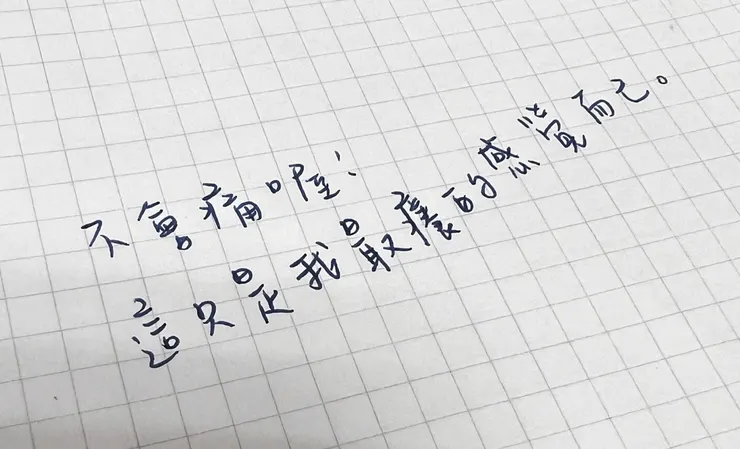 不會痛喔：
這只是我最癢的感覺而已。